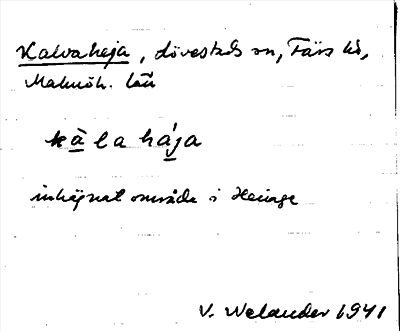 Kalvaheja, Lövestads sn, Färs hd,
Malmöh. län
kàlahája
inhägnat område i Heinge
V. Welander 1941